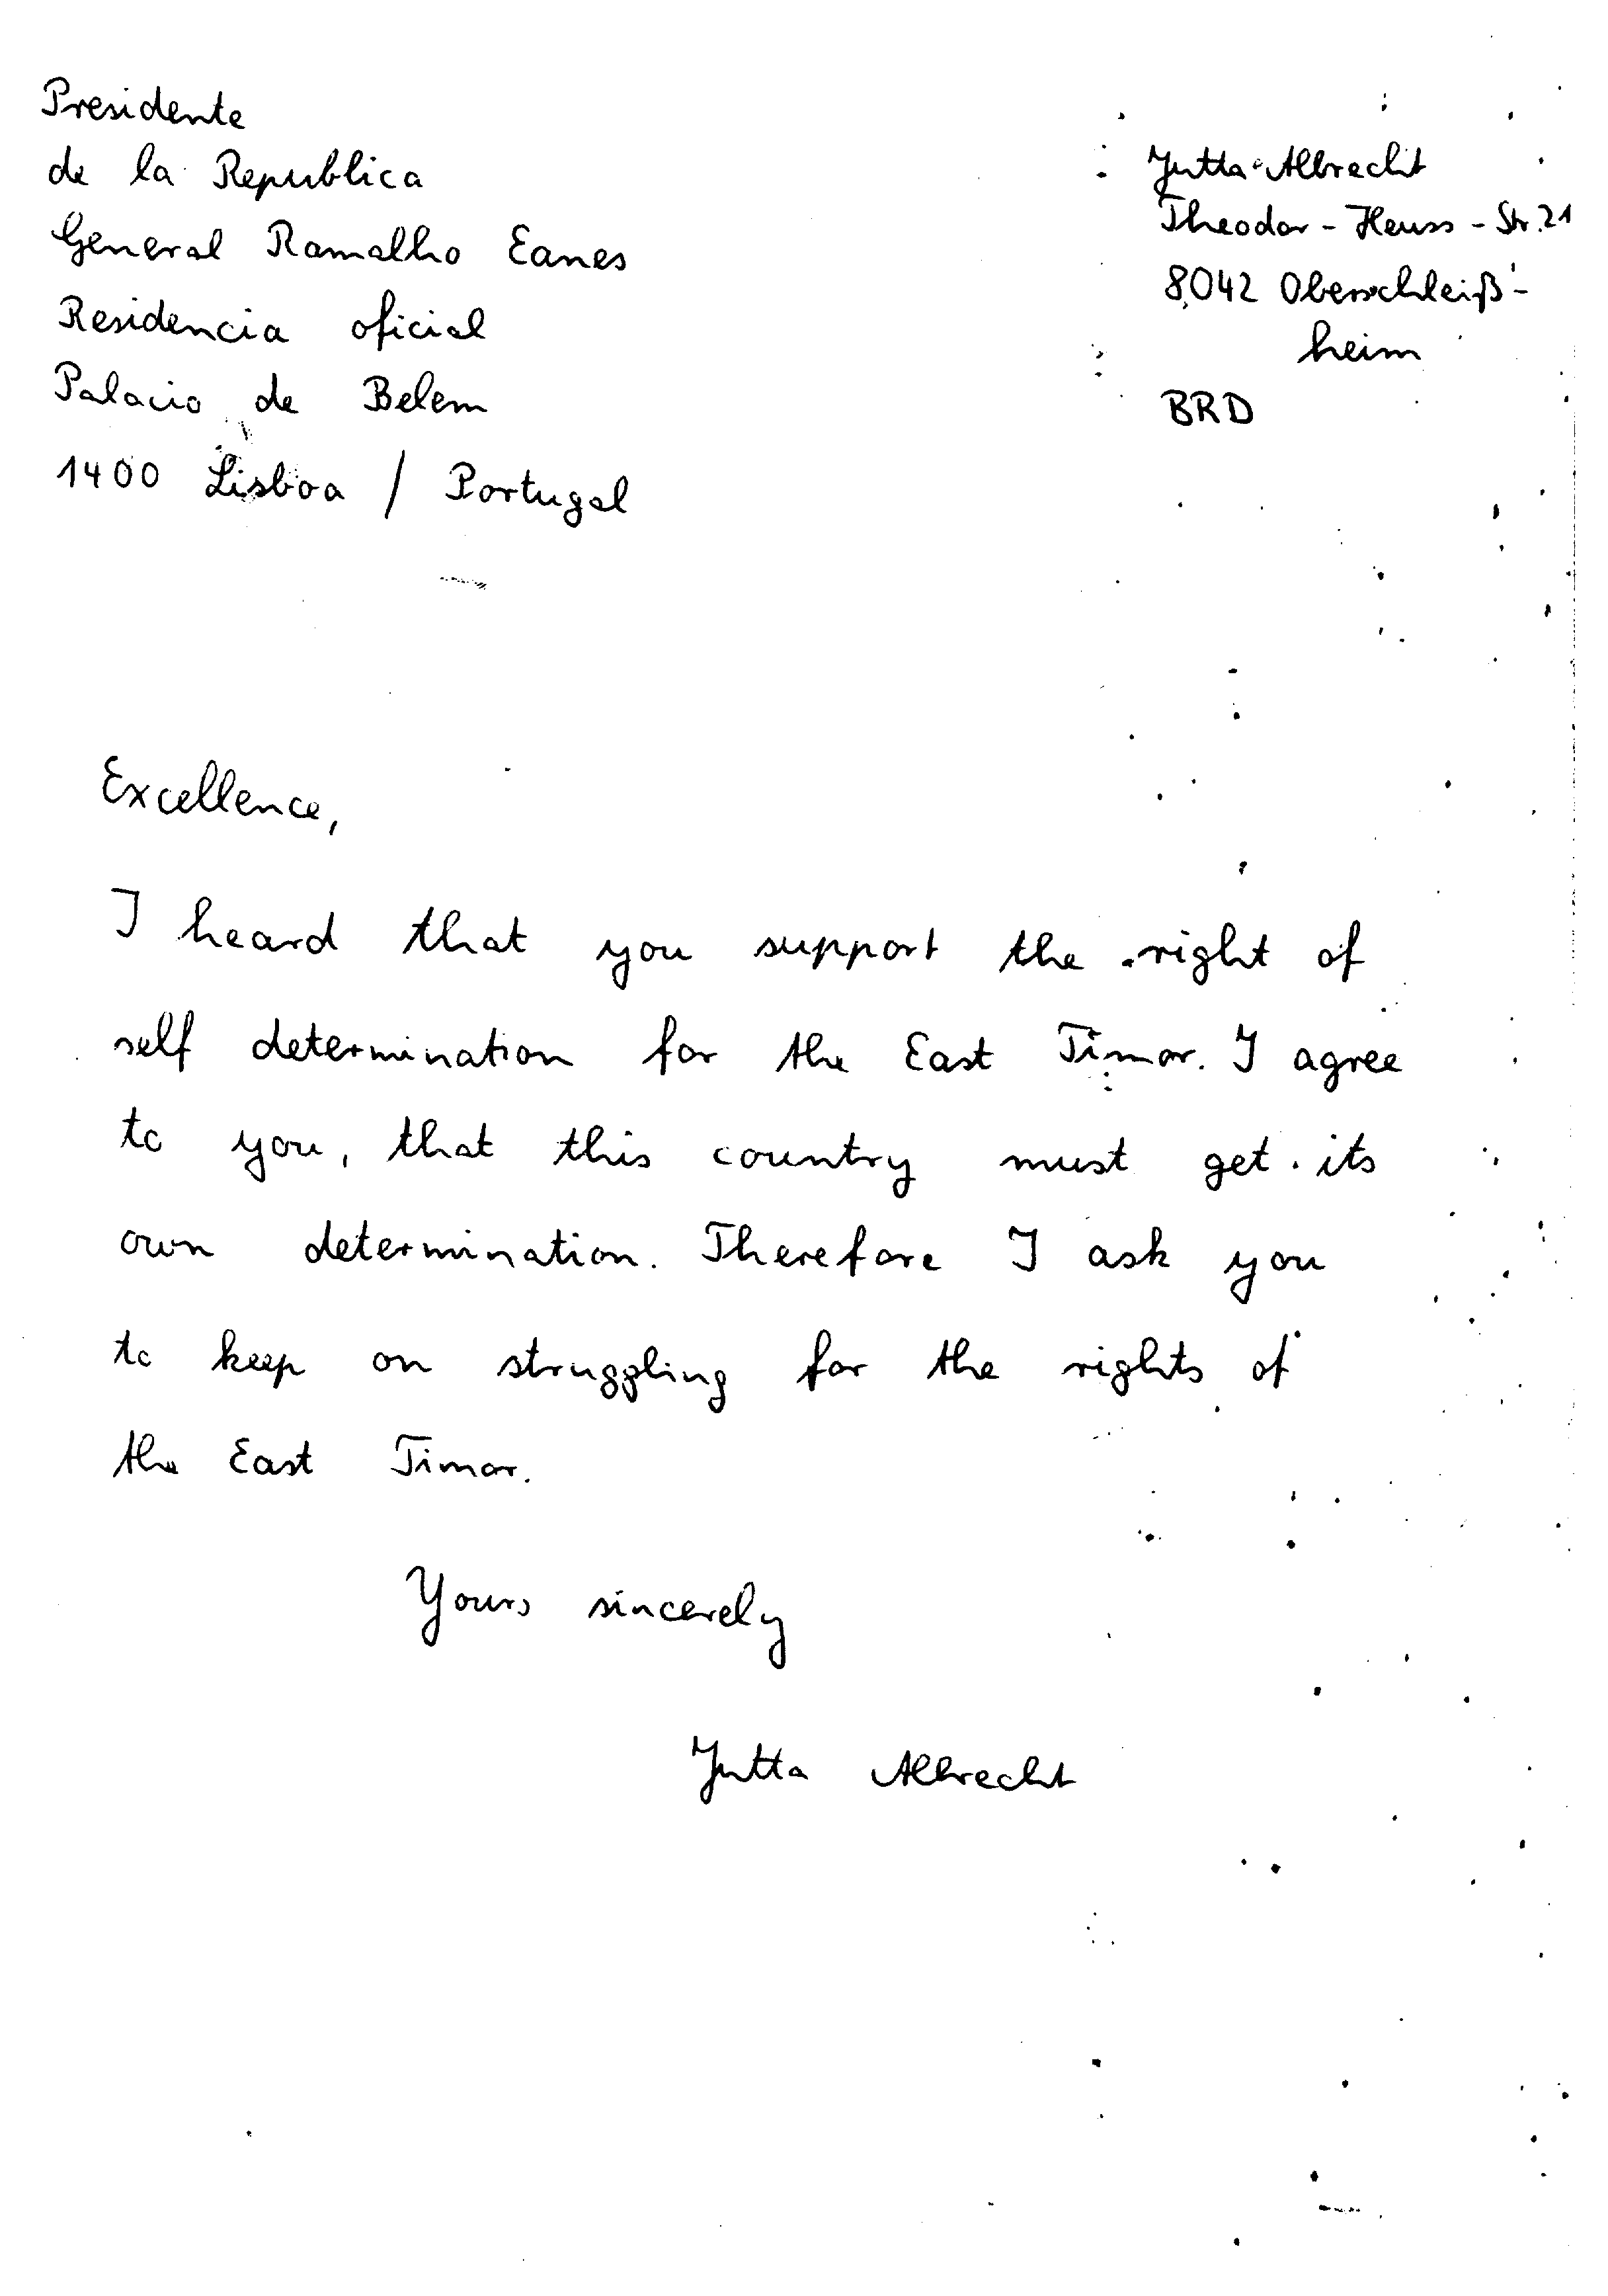 Presidente
de la Republica
General Ramalho Eanes
Residencia oficial
Palacio de Belem
1400 Lisboa / Portugal
Jutta Albrecht
Theodor-Heuss-Str. 21
8042 Oberschleiß-
heim
BRD
Excellence,
I heard that you support the right of
self determination for the East Timor. I agree
to you, that this country must get its
own determination. Therefore I ask you
to keep on struggling for the rights of
the East Timor.
Yours sincerely
Jutta Albrecht